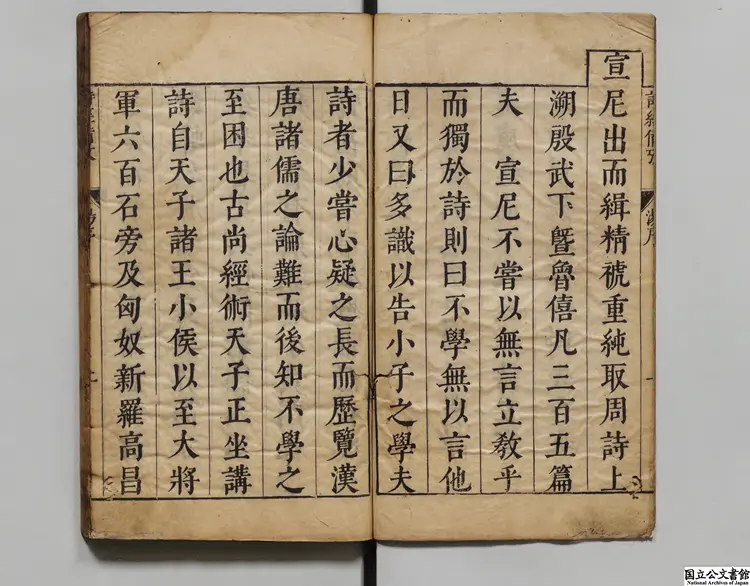 宣尼出而緝精褫重純取周詩上
溯殷武下曁魯僖凡三百五篇
夫 宣尼不嘗以無言立敎乎
而獨於詩則曰不學無以言他
日又曰多識以告小子之學夫
詩者少嘗心疑之長而歷覽漢
唐諸儒之論難而後知不學之
至困也古尚經術天子正坐講
詩自天子諸王小侯以至大將
軍六百石旁及匈奴新羅高昌
国立公文書館
National Archives of Japan